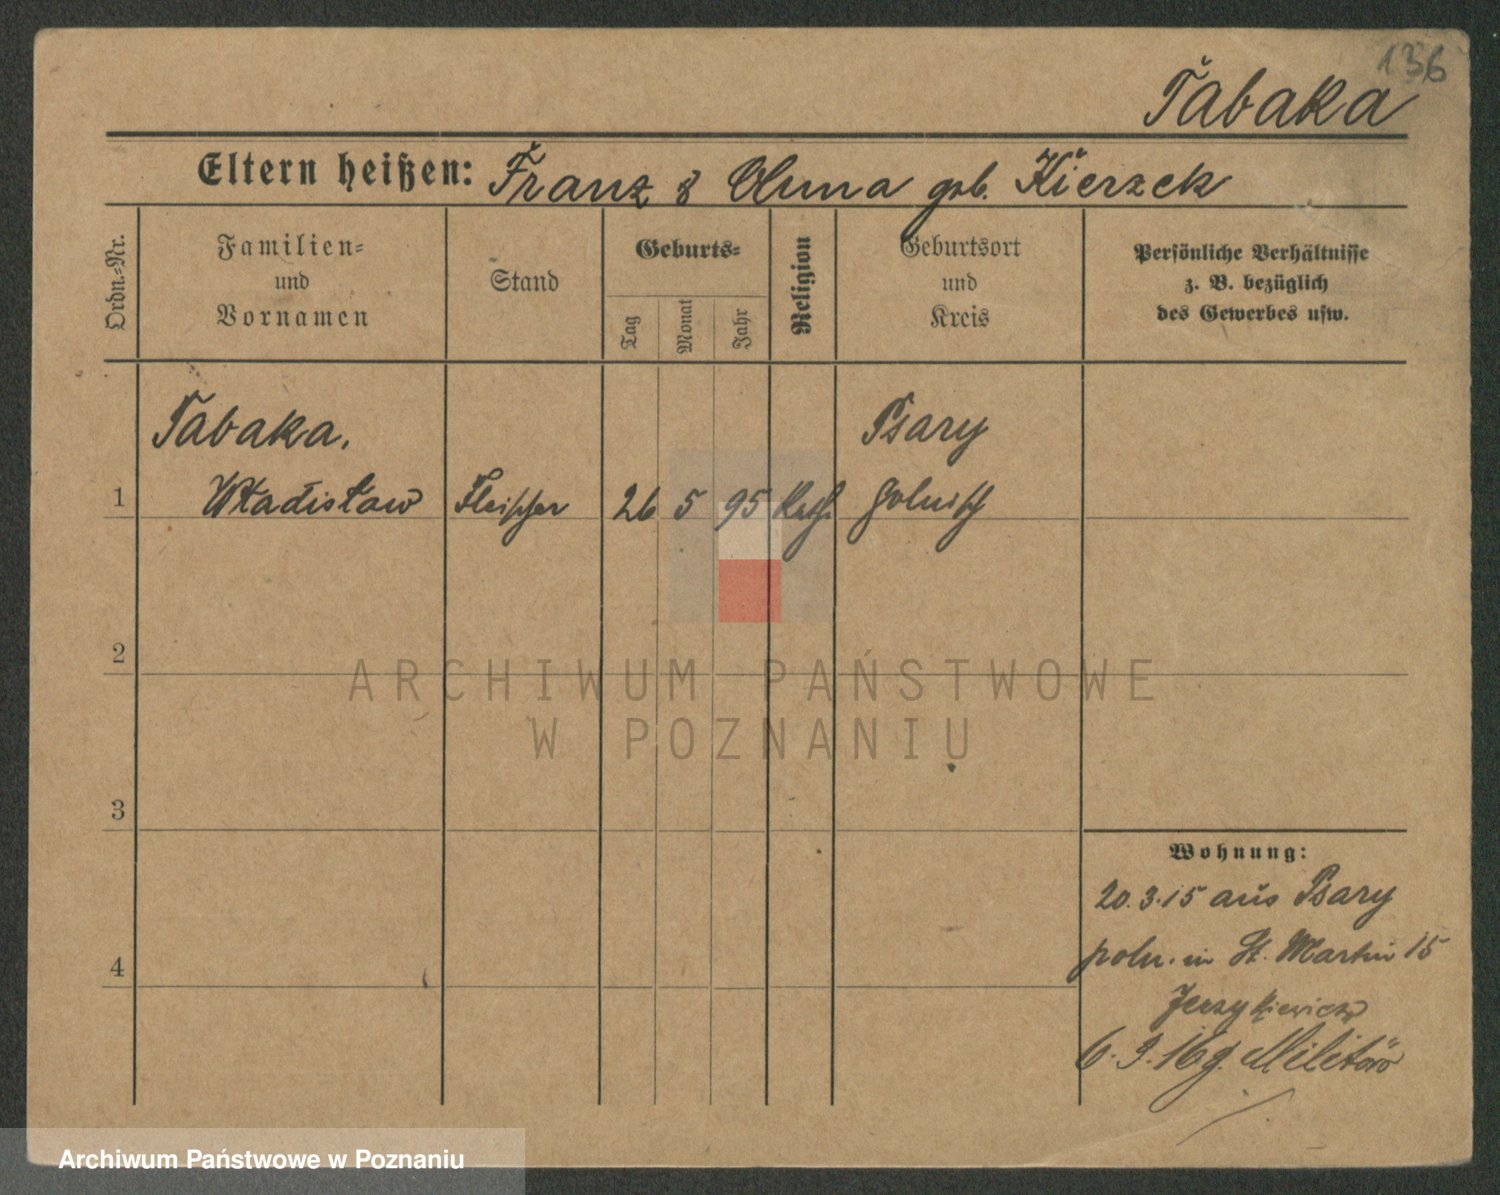 136
Tabaka
Eltern heißen: Franz & Anna geb. Kierzek
Ordn.-Nr.
Familien-
und
Vornamen
Stand
Geburts-
Tag
Monat
Jahr
Religion
Geburtsort
und
Kreis
Persönliche Verhältnisse
z. B. bezüglich
des Gewerbes usw.
Tabaka,
Psary
1 Władisław Fleischer 26 5 95 Kath.
2
ARCHIWUM PAŃSTWOWE
W POZNANIU
3
4
Wohnung:
20.3.15 aus Psary
poln. in St. Martin 15
Jerzykiewicz
6.9.16 z. Militär
Archiwum Państwowe w Poznaniu